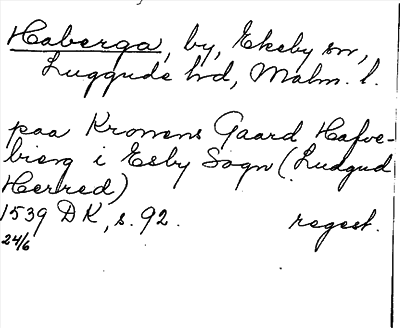 Haberga, by, Ekeby sn,
Luggude hd, Malm. l.
paa Kronens Gaard Hafve-
bierg i Eeby Sogn (Ludgud
Herred)
1539 DK, s. 92. regest.
24/6